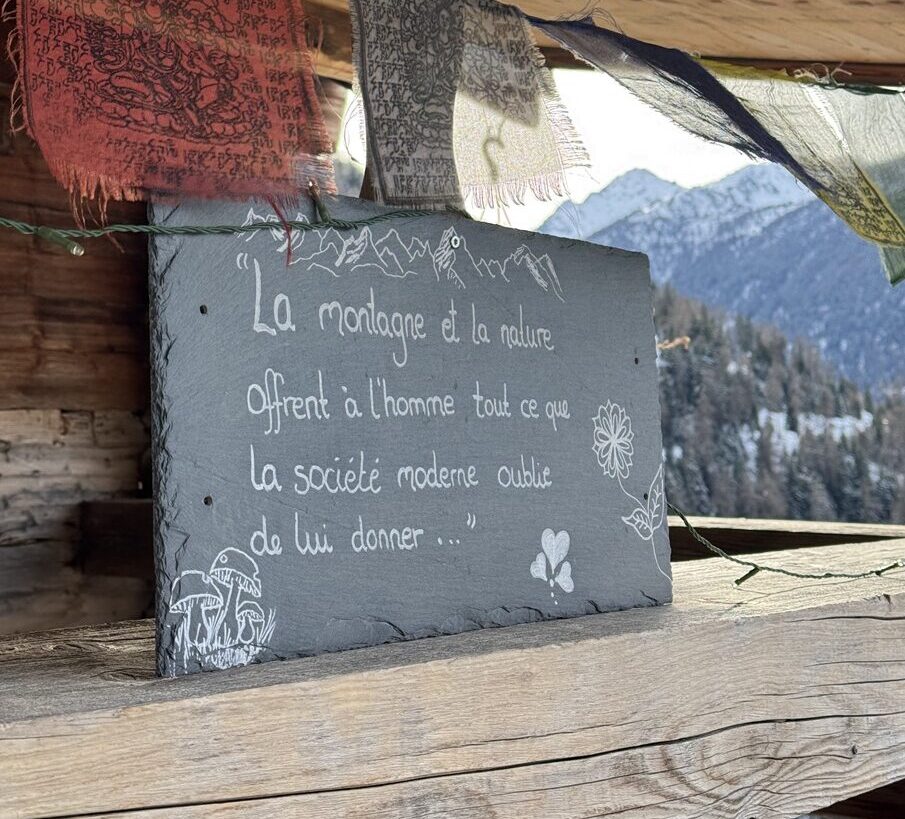 "La montagne et la nature
offrent à l'homme tout ce que
la société moderne oublie
de lui donner ..."